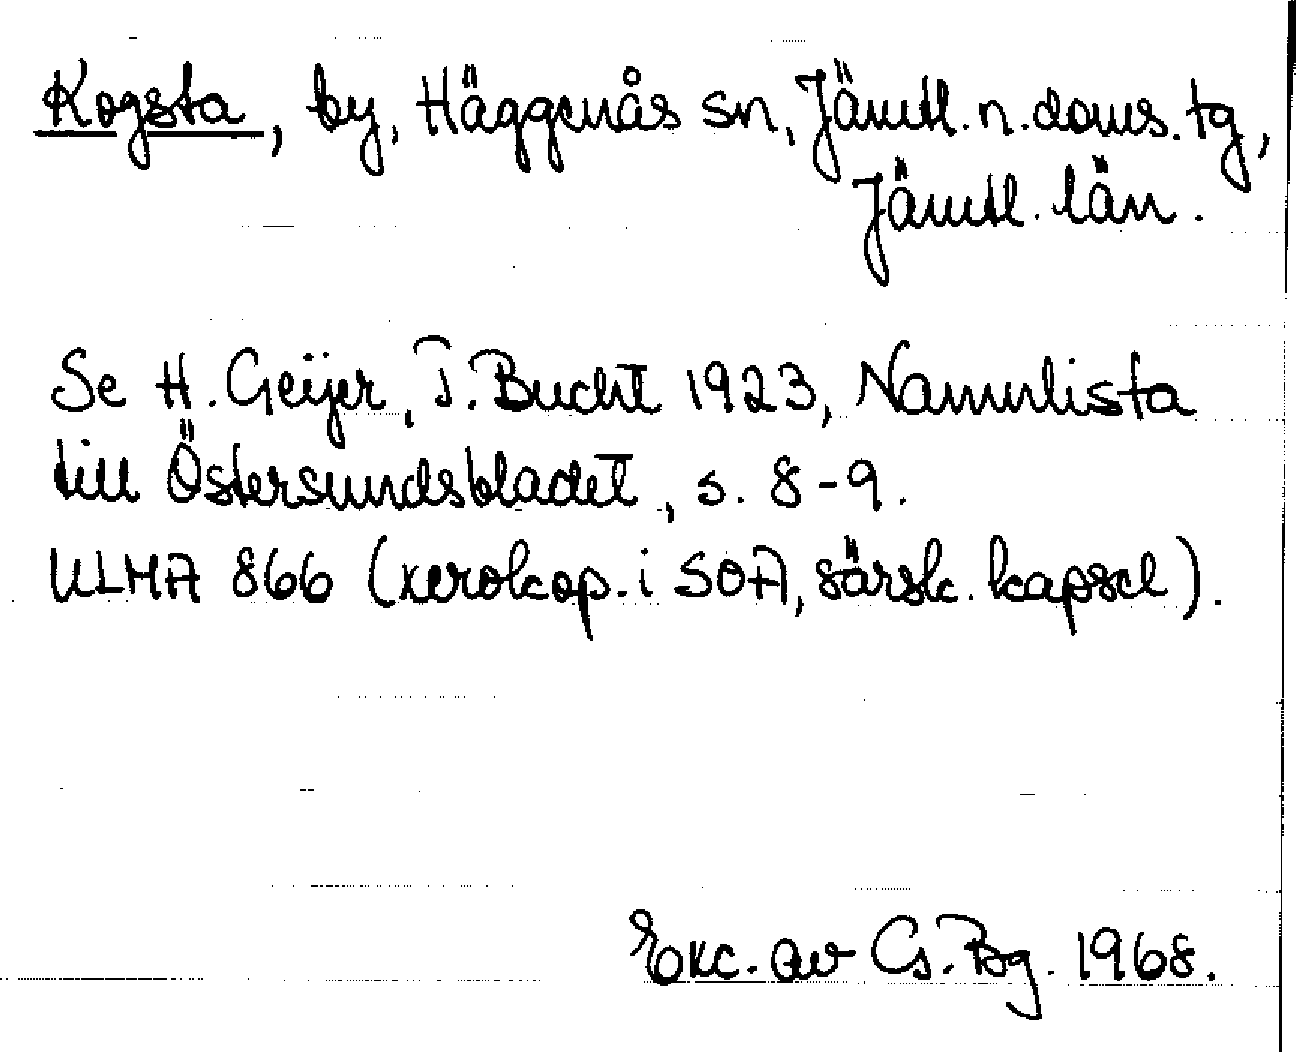 Kogsta, by, Häggenås sn, Jämtl. n. doms. tg,
Jämtl. län.
Se H. Geijer, T. Bucht 1923, Namnlista
till Östersundsbladet, s. 8-9.
ULMA 866 (xerokop. i SOA, särsk. kapsel).
Exc. av G. Bg. 1968.